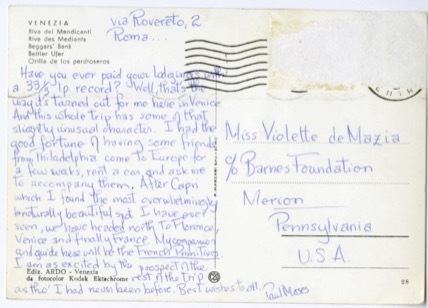 VENEZIA
Riva dei Mendicanti
Rive des Mediants
Beggars' Bank
Bettler Ufer
Orilla de los perdroseros
via Rovereto, 2
Roma...
Have you ever paid your lodgings with
a 33⅓ lp record? Well, that's the
way it's turned out for me here in Venice
And this whole trip has some of that
slightly unusual character. I had the
good fortune of having some friends
from Philadelphia come to Europe for
a few weeks, rent a car and ask me
to accompany them. After Capri
which I found the most overwhelmingly
naturally beautiful spot I have ever
seen, we have headed north to Florence,
Venice and finally France. My companion
and guide here will be the French Primitives.
I am as excited by the prospect of the
rest of the trip
as tho' I had never been before. Best wishes to all.
Paul Moses
Ediz. ARDO - Venezia
da fotocolor Kodak Ektachrome
Miss Violette de Mazia
c/o Barnes Foundation
Merion
Pennsylvania
U.S.A.
28